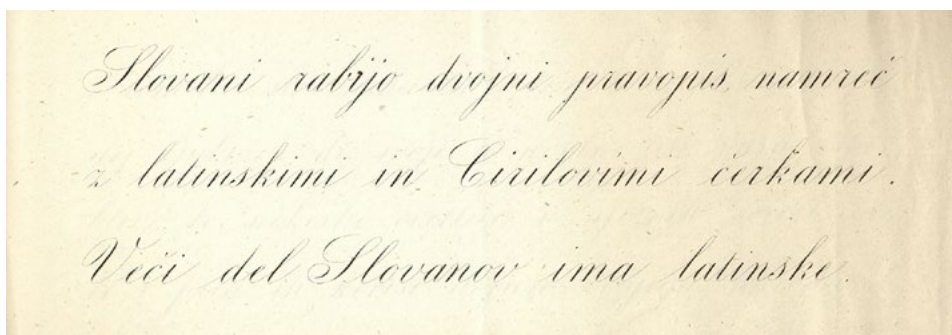 Slovani rabijo dvojni pravopis, namreč
z latinskimi in Cirilovimi čerkami.
Veči del Slovanov ima latinske.